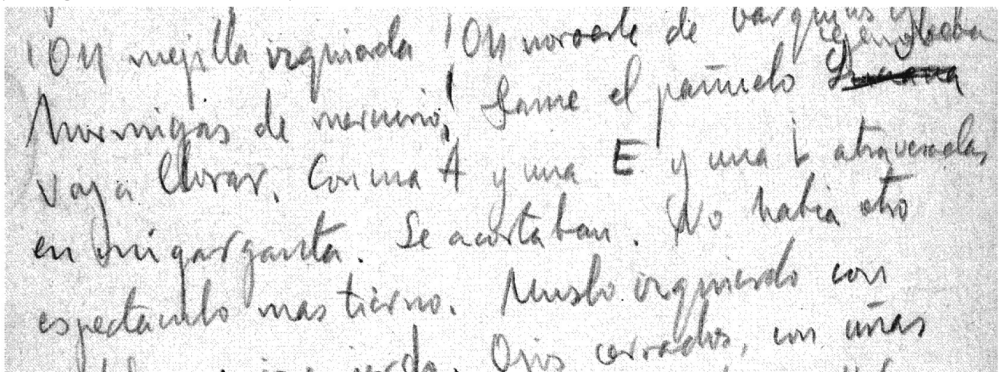 ¡Oh mejilla izquierda! ¡Oh noroeste de barquitos y
hormigas de mercurio! Dame el pañuelo Genoveva
voy a llorar. Con una A y una E y una i atravesadas
en mi garganta. Se acostaban. No habia otro
espectaculo mas tierno. Muslo izquierdo con
Ojos cerrados, con uñas